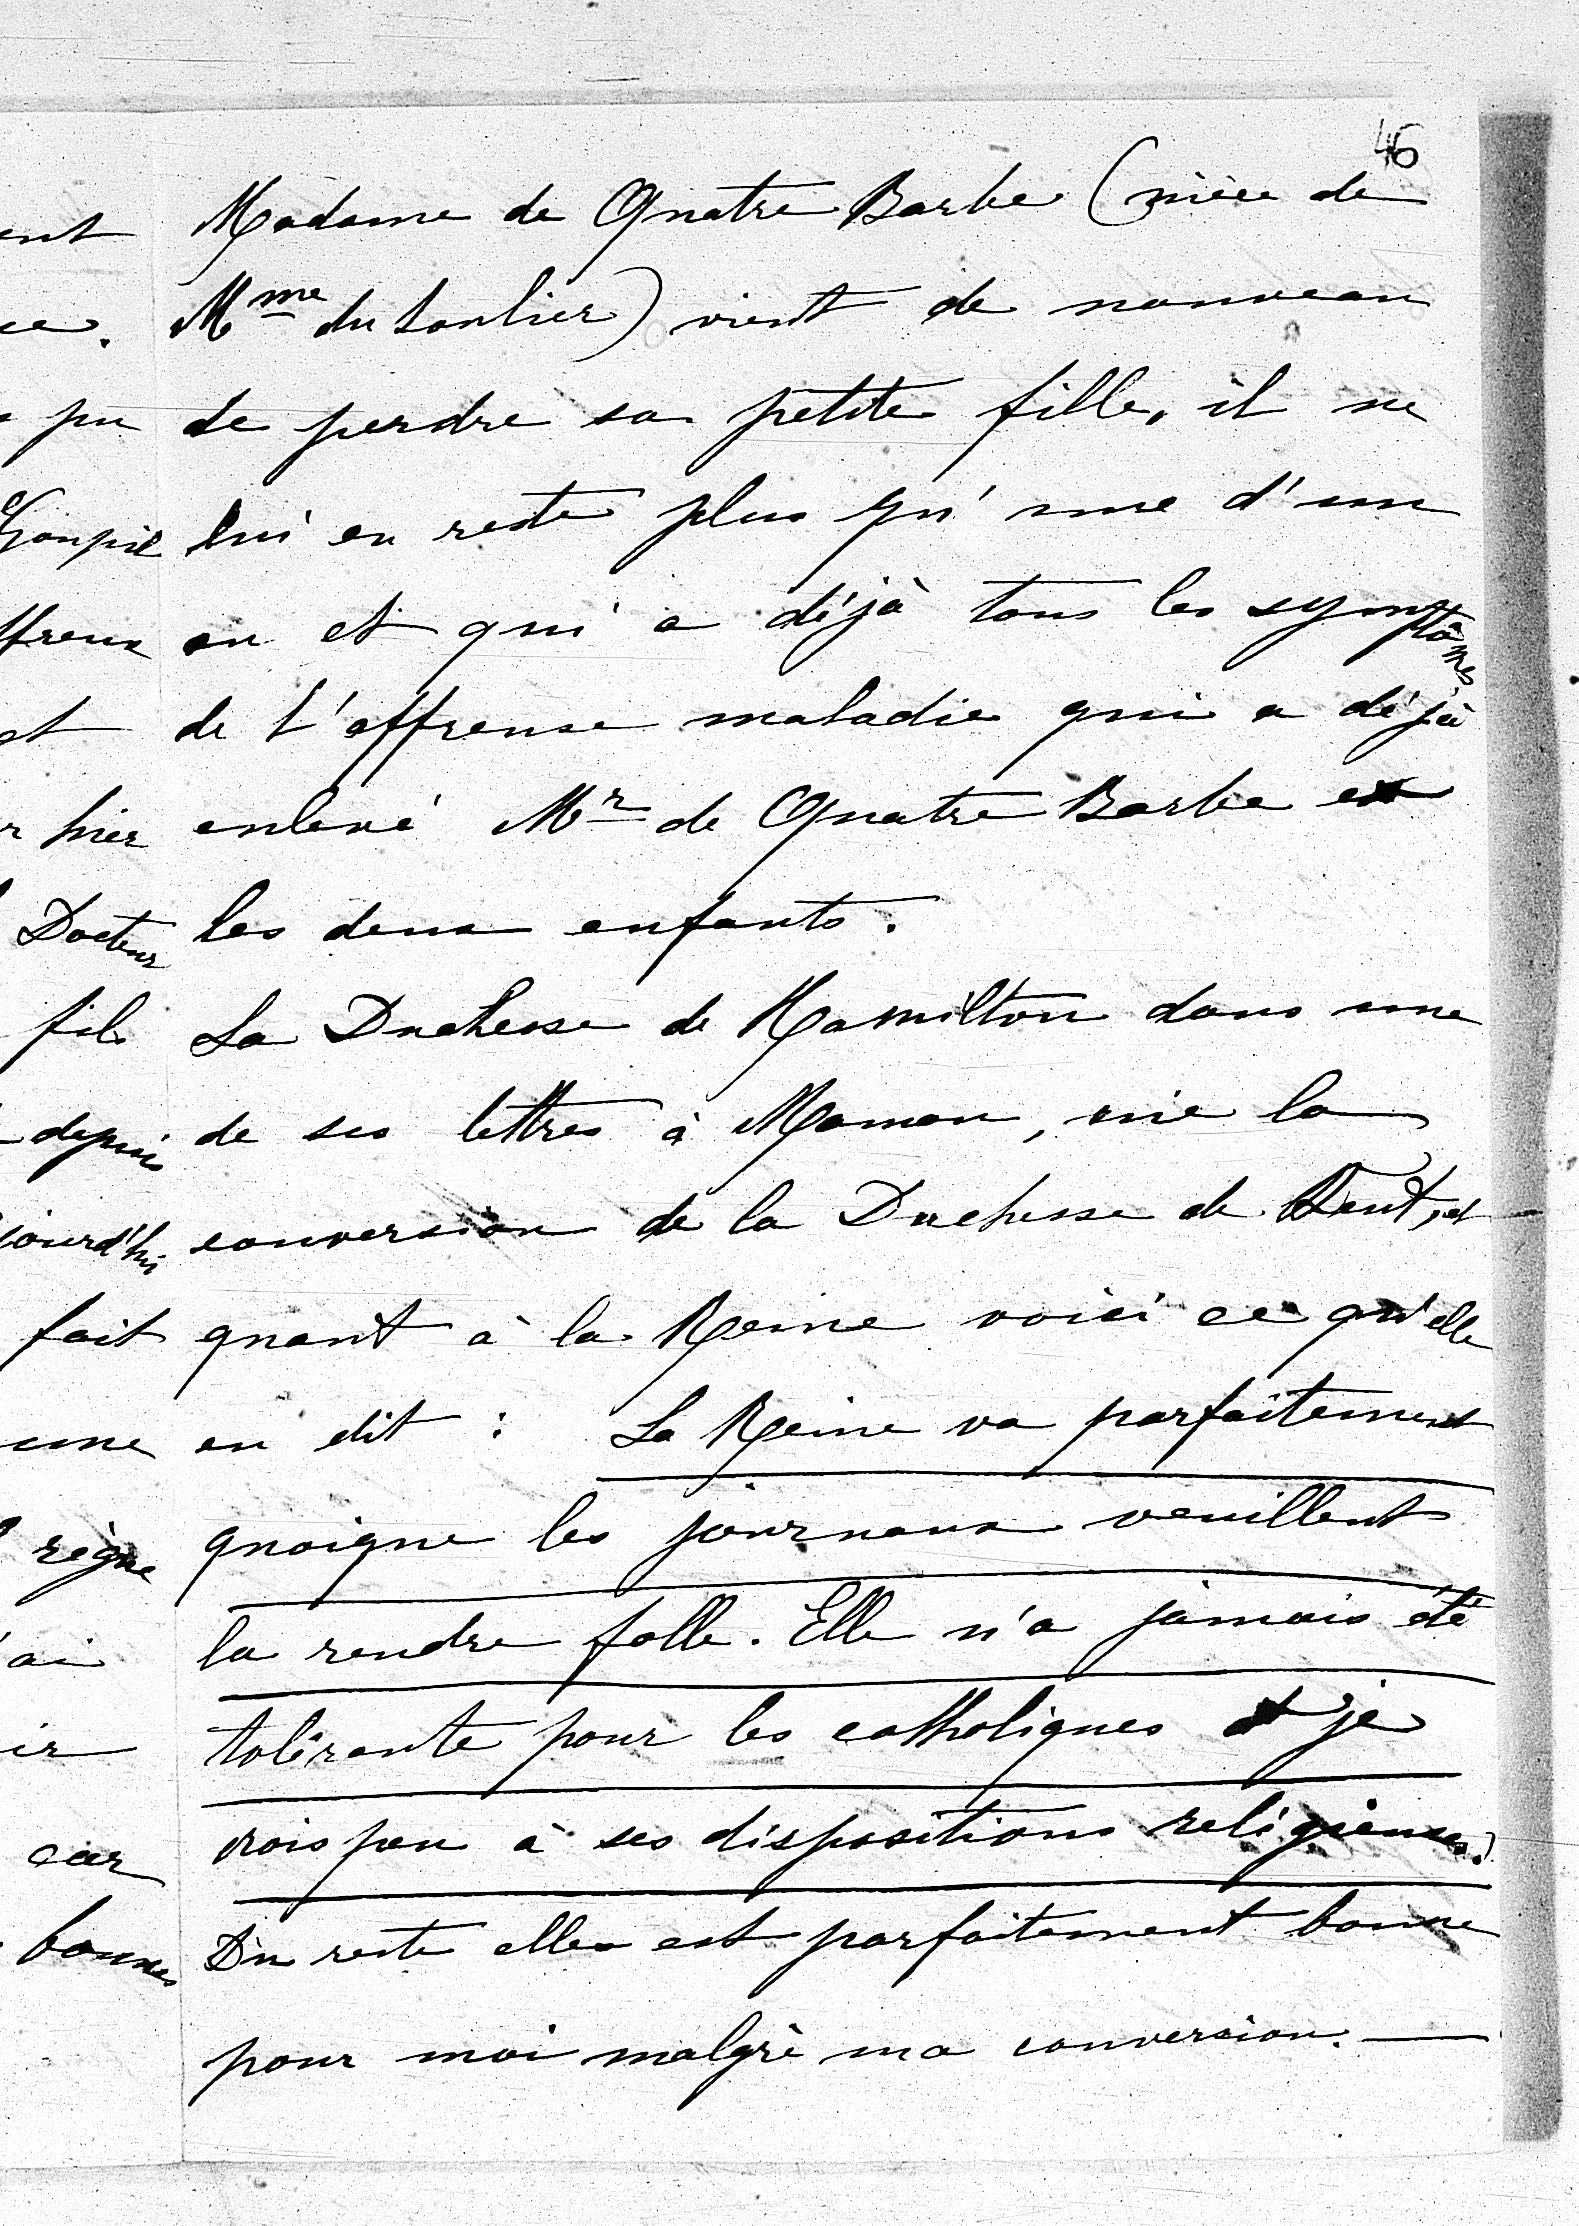 46
Madame de Quatre Barbe (nièce de
Mme du Soulier) vient de nouveau
de perdre sa petite fille, il ne
lui en reste plus qu'une d'un
an et qui a déjà tous les symptômes
de l'affreuse maladie qui a déjà
enlevé Mr de Quatre Barbe et
les deux enfants.
La Duchesse de Hamilton dans une
de ses lettres à Maman, nie la
conversion de la Duchesse de Kent, et
quant à la Reine voici ce qu'elle
en dit : La Reine va parfaitement
quoique les journaux veuillent
la rendre folle. Elle n'a jamais été
tolérante pour les catholiques et je
crois peu à ses dispositions religieuses.
Du reste elle est parfaitement bonne
pour moi malgré ma conversion. —
ent
ce.
pu
Goupil
ffreux
et
hier
Docteur
fils
depuis
jourd'hui
fait
une
règne
'ai
ir
car
bonnes